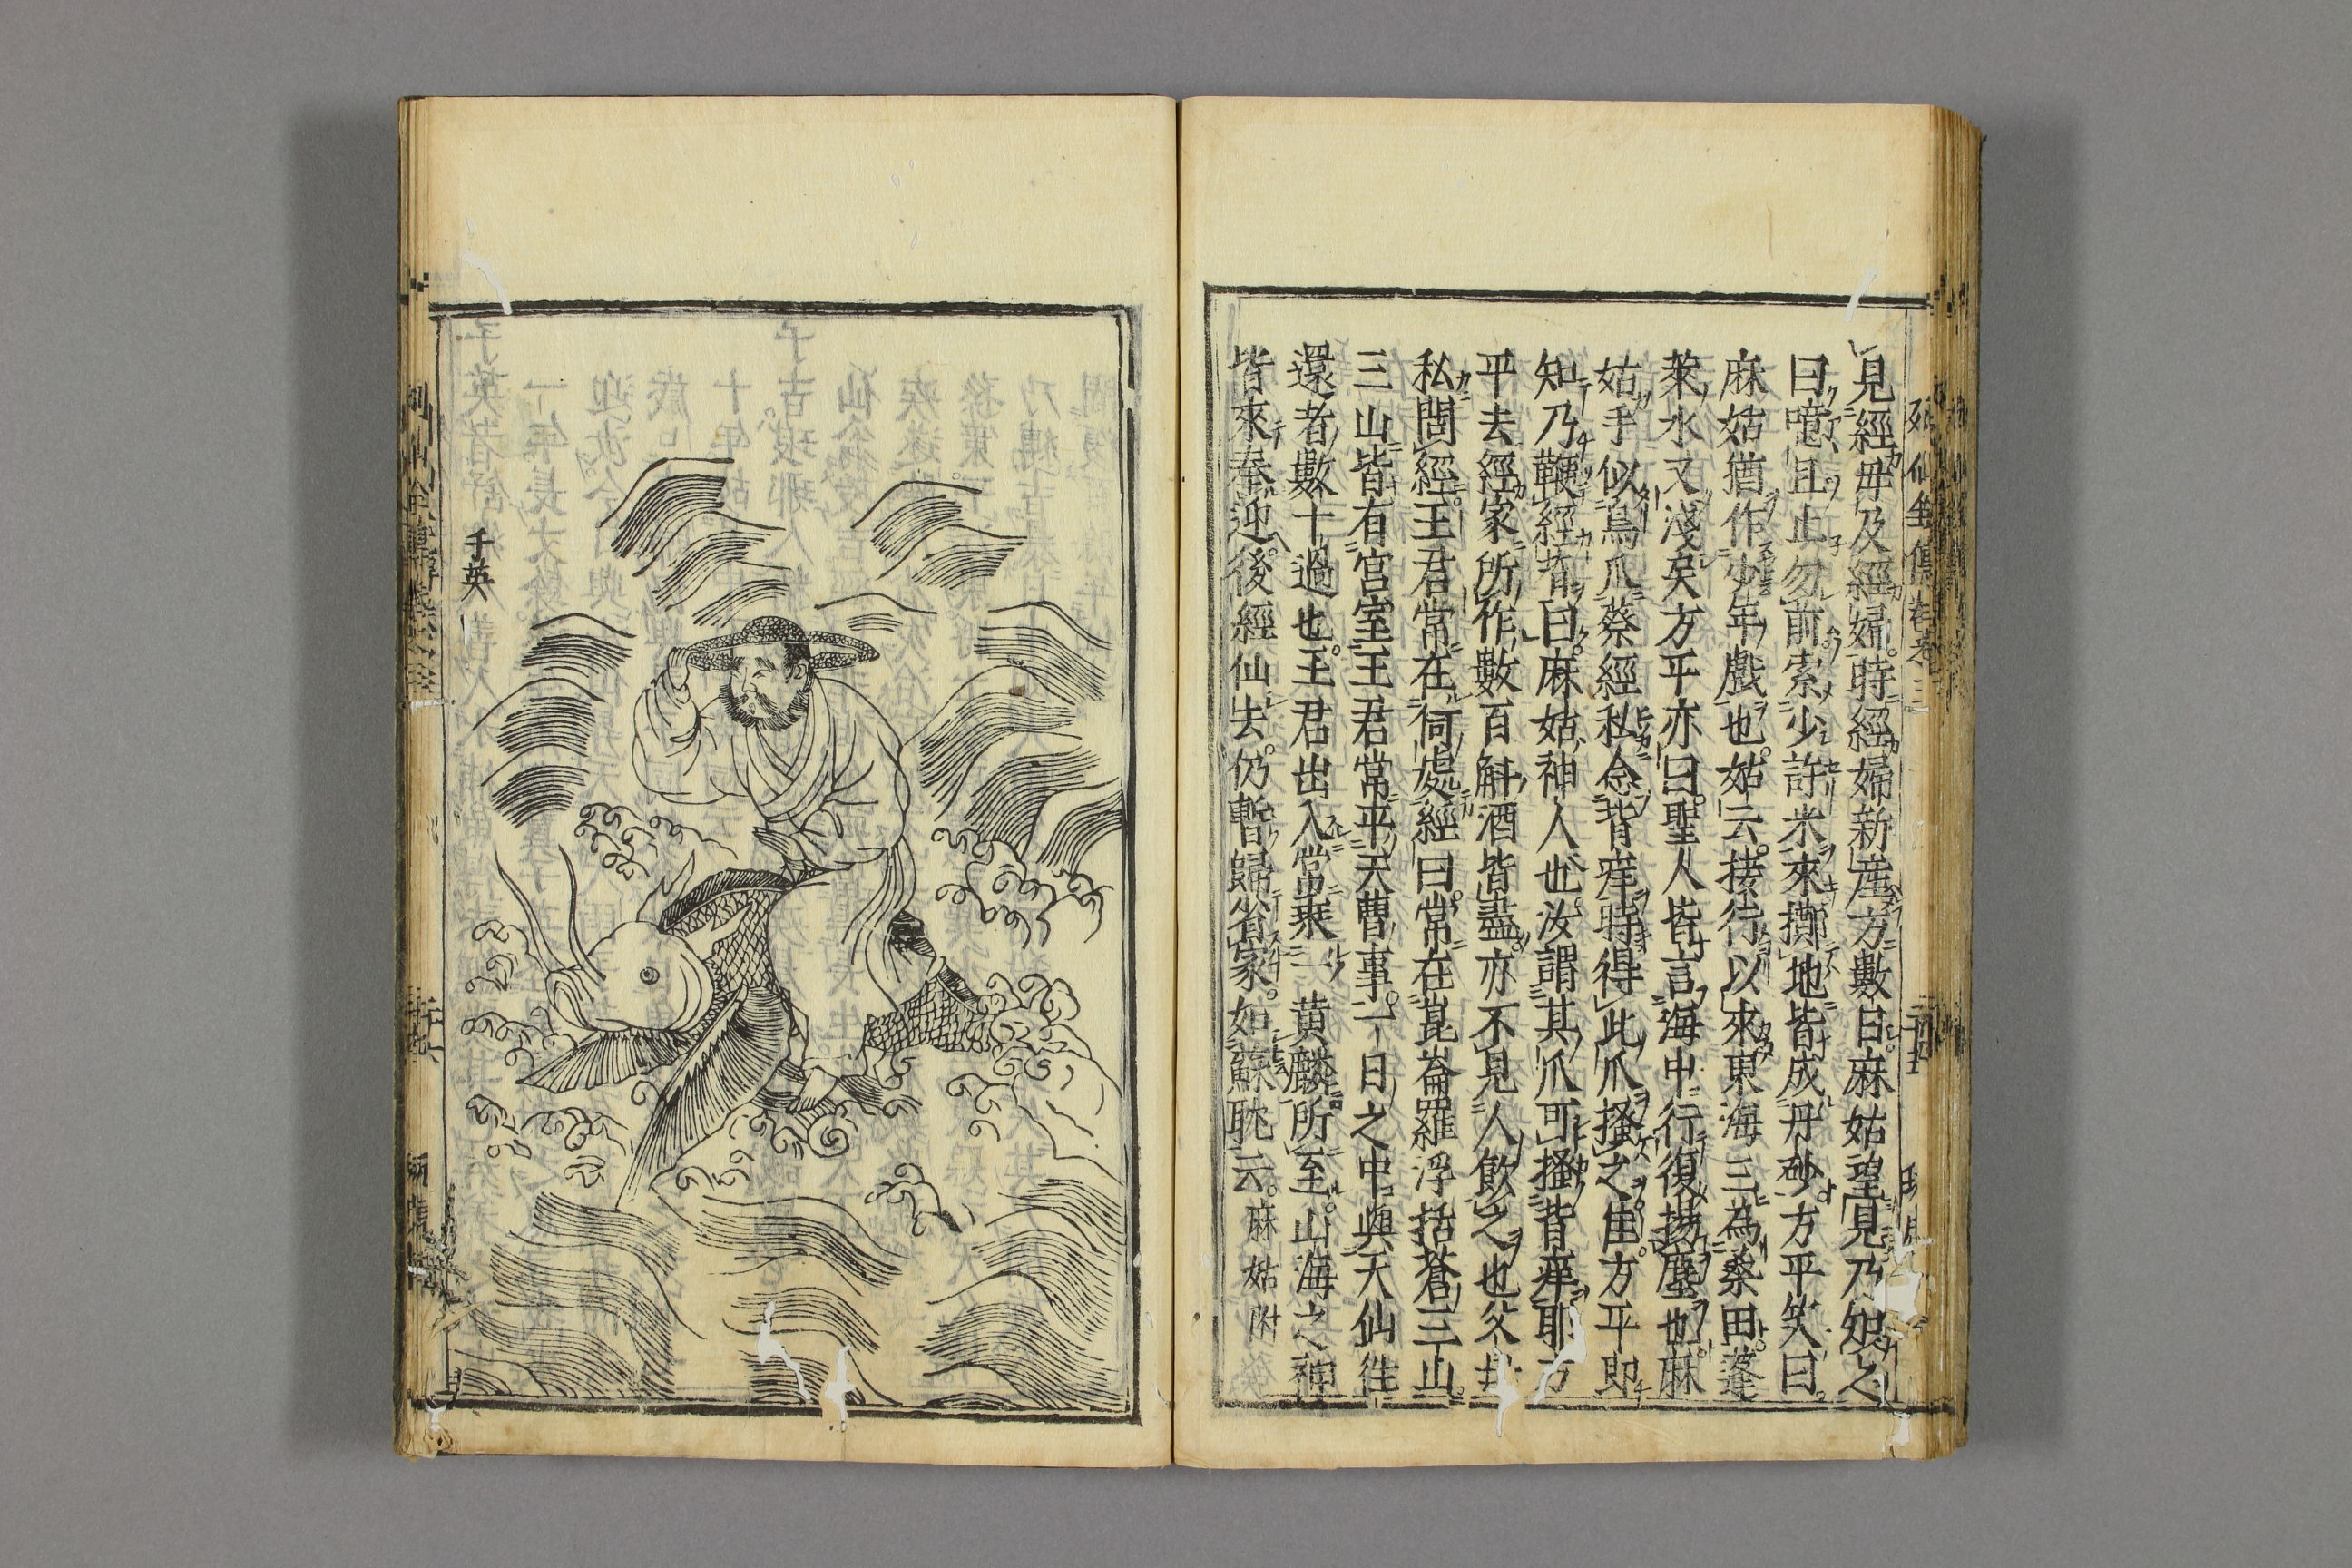 見經毋及經婦時經婦新産方數日麻姑望見乃知之
曰噫且止勿前索少許米來擲地皆成丹砂方平笑曰
麻姑猶作少年戲也姑云接行以來東海三為桑田蓬
萊水又淺矣方平亦曰聖人皆言海中行復揚塵也麻
姑手似鳥爪蔡經私念背痒時得此爪搔之佳方平即
知乃鞭經背曰麻姑神人也汝謂其爪可搔背痒耶方
平去經家所作數百斛酒皆盡亦不見人飲之也父母
私問經王君常在何處經曰常在崑崙羅浮括蒼三山
三山皆有宮室王君常平天曹事一日之中與天仙往
還者數十過也王君出入常乘一黄麟所至山海之神
皆來奉迎後經仙去仍暫歸省家如蘇耽云麻姑附
子英